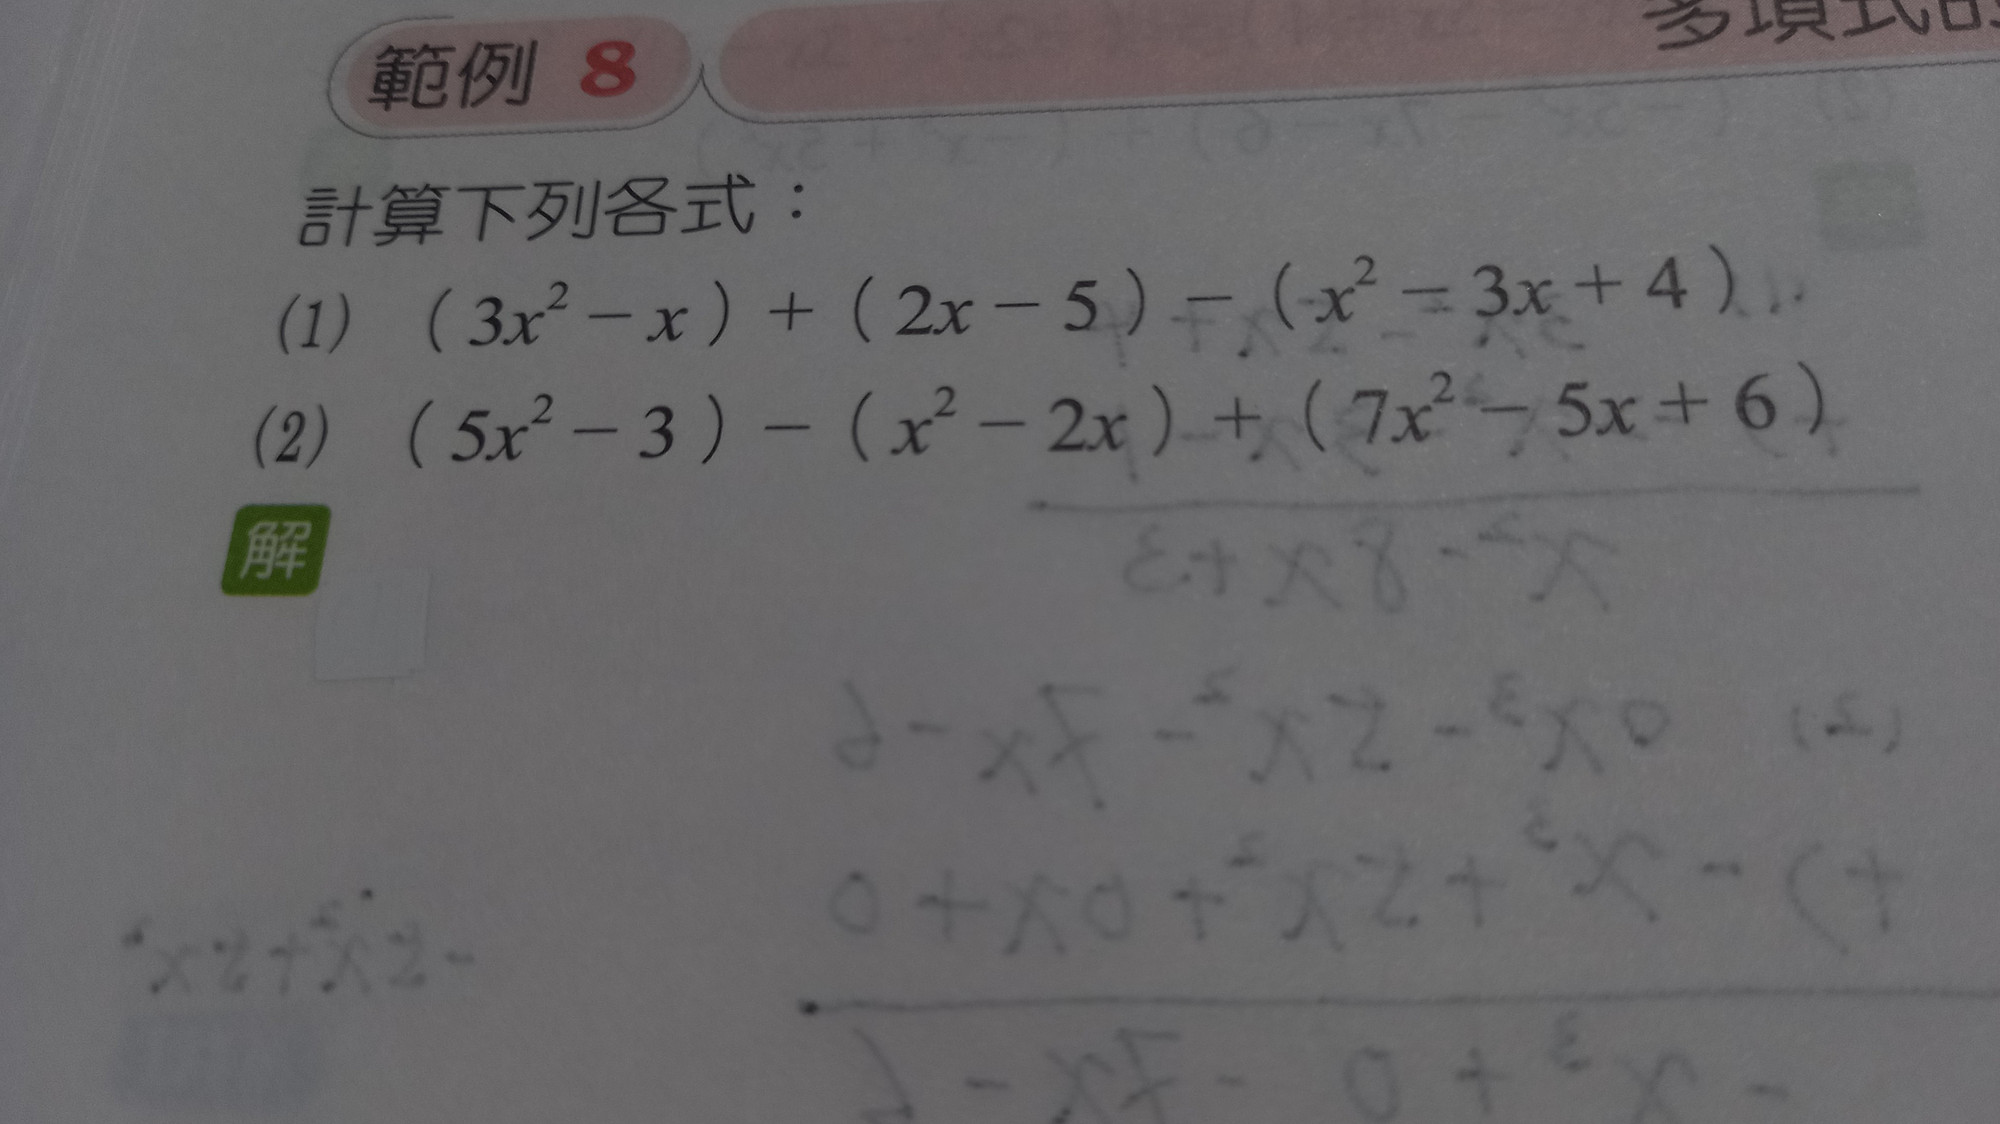 範例 8 多項式的
計算下列各式：
(1) （3x²－x）＋（2x－5）－（x²－3x＋4）
(2) （5x²－3）－（x²－2x）＋（7x²－5x＋6）
解